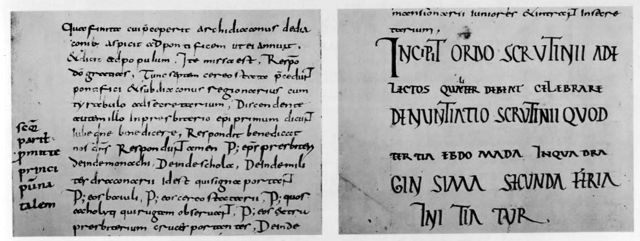 Quae finita cui p̄ceperit archidiaconus dedia
conib; aspicit ad pontificem ut ei annuat,
& dicit ad populum. Ite missa est. Respo
dō gratias, Tunc septem cereostata p̄cedunt
pontifici & subdiaconus regionarius cum
tyrabulo ad secretarium, Discendente
autem illo in presbiterio epi primum dicunt
Iube dne benedicere, Respondit benedicat
nos dns Respondunt amen P; epos presbiteri
deinde monachi, Deinde schola, Deinde mili
tes draconarii id est qui signa portant
P; eos baiuli, P; eos cereostatarii, P; quos
acholiti qui rugam observant, P; eos extra
presbiterium cruces portantes, Deinde
princi
pum na
talem
mansionarii iuniores & intrant in secre
tarium,
INCIPIT ORDO SCRUTINII AD E
LECTOS QUALITER DEBEAT CELEBRARE
DENUNTIATIO SCRUTINII QUOD
TERTIA EBDOMADA IN QUADRA
GINSIMA SECUNDA FERIA
INITIATUR.